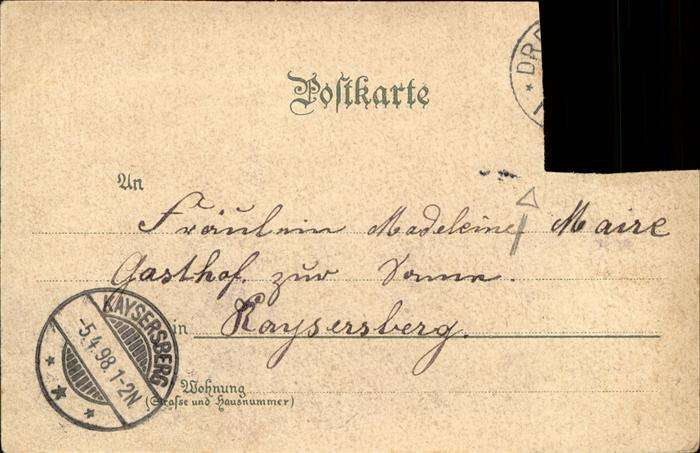 Postkarte
An
Fräulein Madeleine Maire
Gasthof zur Sonne.
in Kaysersberg.
KAYSERSBERG
-5.4.98.1-2N
Wohnung
(Strasse und Hausnummer)